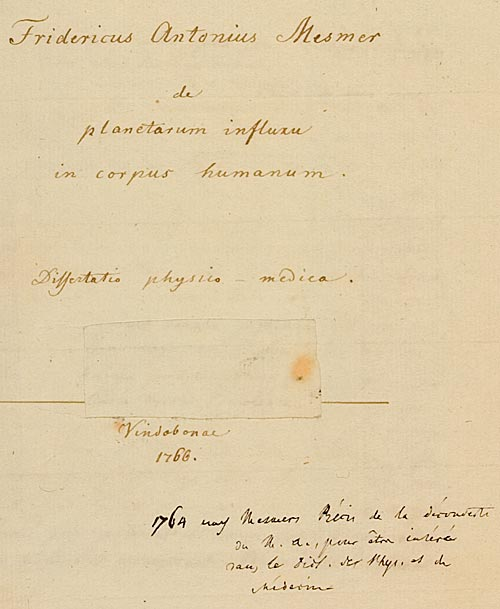 Fridericus Antonius Mesmer
de
planetarum influxu
in corpus humanum.
Dissertatio physico - medica.
Vindobonae
1766.
1764 Mesmers Précis de la découverte
du M. a., pour être inséré
dans le Dict. des Phys. et de
Médecin